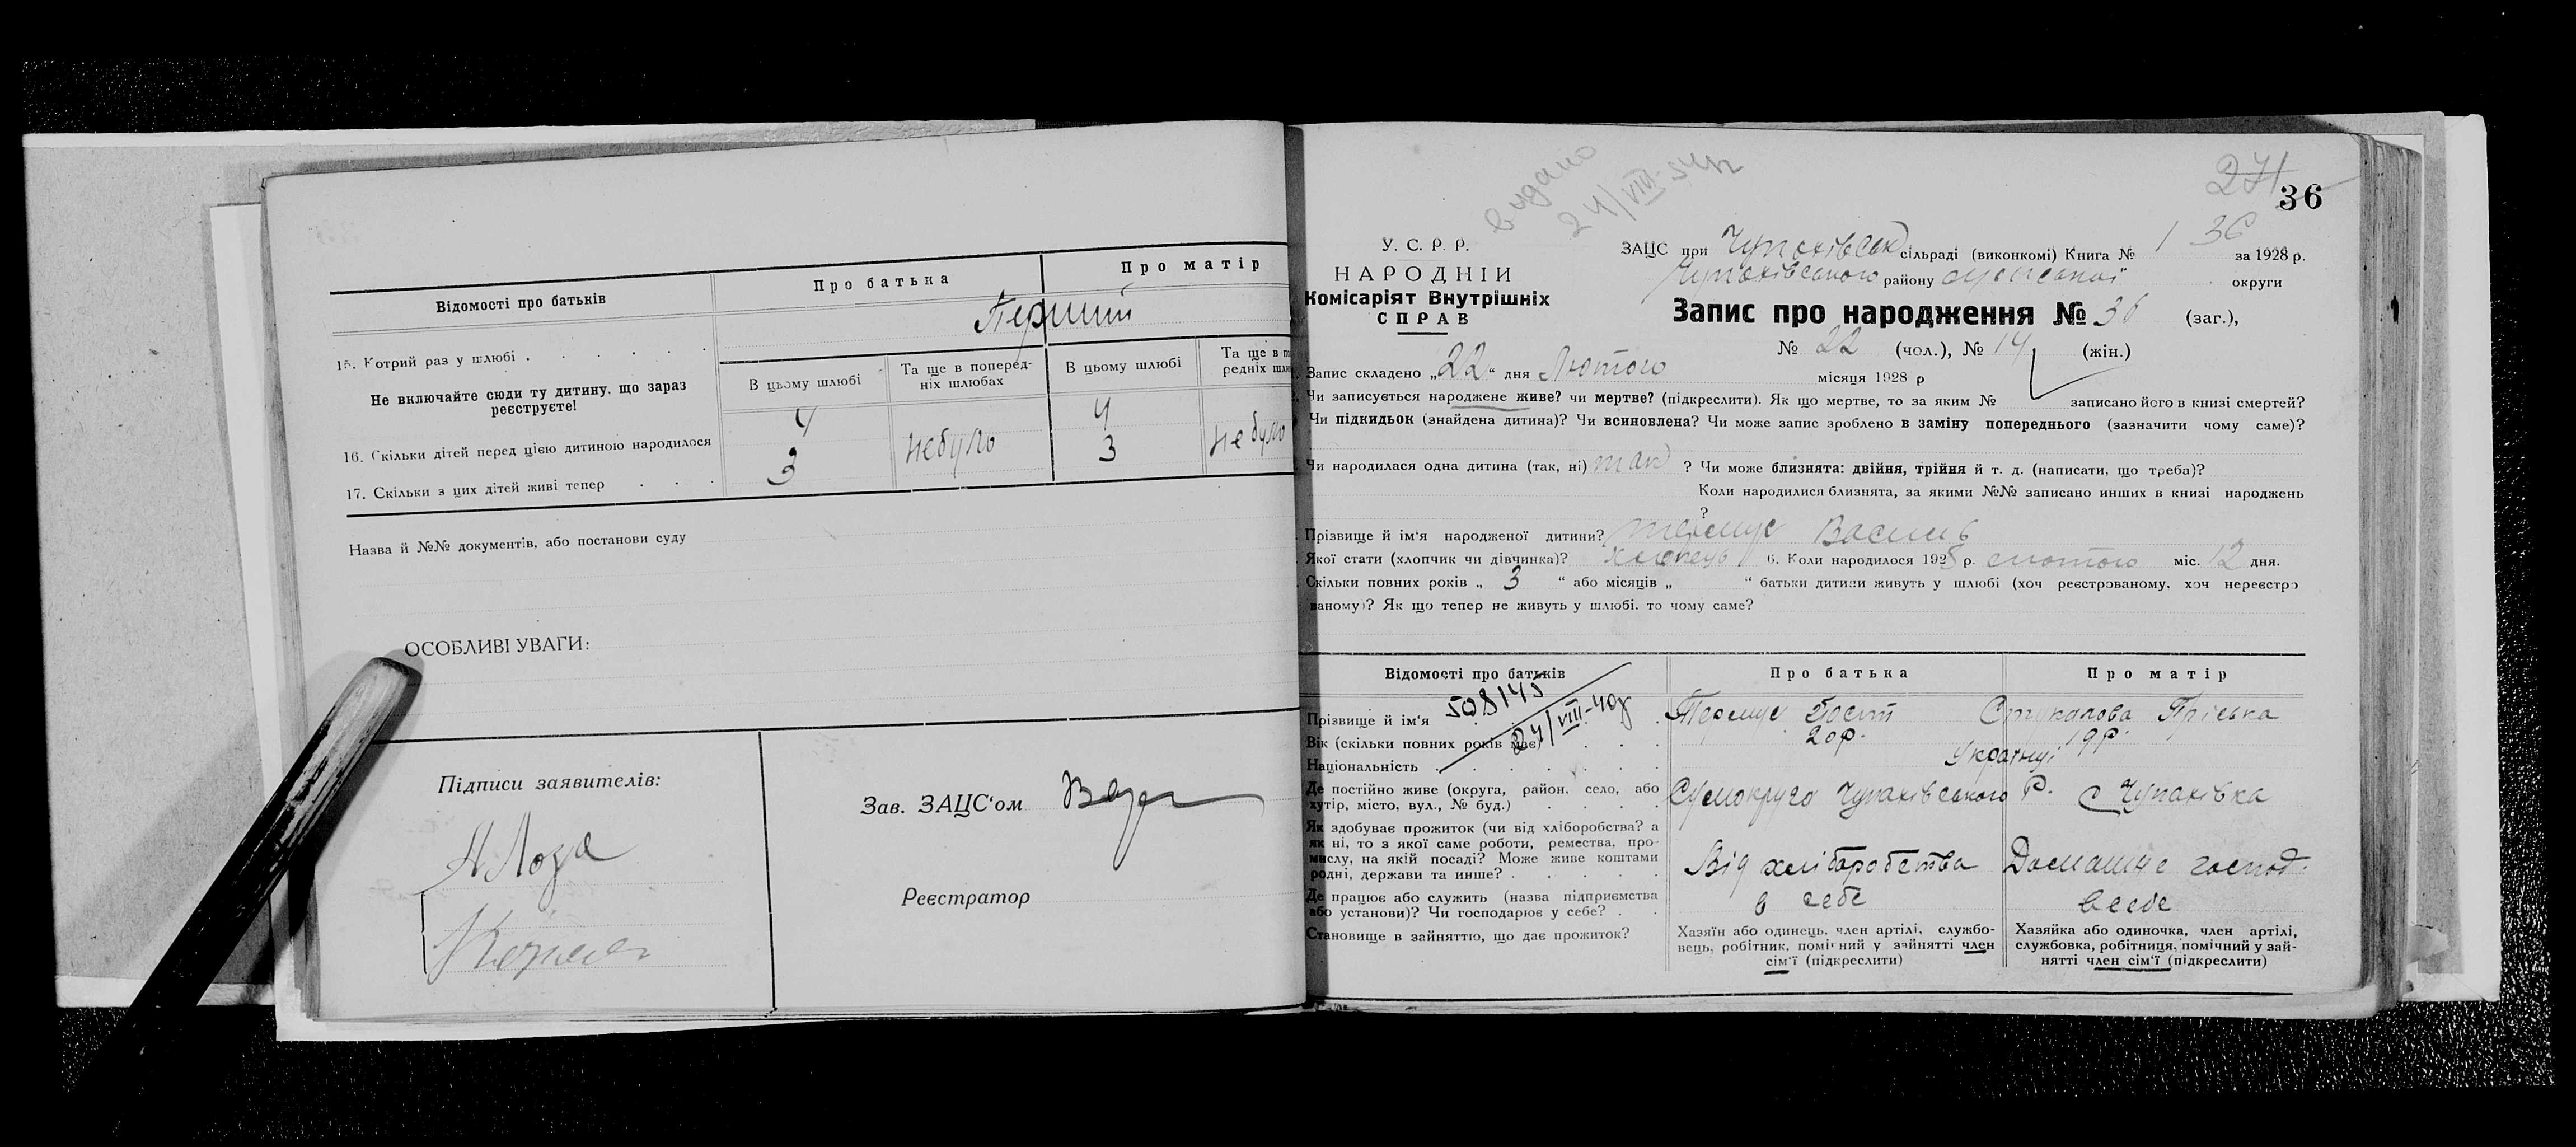 Відомості про батьків
Про батька
Про матір
15. Котрий раз у шлюбі
Перший
Не включайте сюди ту дитину, що зараз реєструєте!
В цьому шлюбі
Та ще в поперед-
ніх шлюбах
В цьому шлюбі
Та ще в по
редніх шлю
16. Скільки дітей перед цією дитиною народилося
4
небуло
4
не було
17. Скільки з цих дітей живі тепер
3
3
Назва й №№ документів, або постанови суду
ОСОБЛИВІ УВАГИ:
Підписи заявителів:
Зав. ЗАЦС'ом
Реєстратор
А Лоза
видано
24/VIII-54
271
36
У. С. Р. Р.
НАРОДНІЙ
Комісаріят Внутрішніх
СПРАВ
ЗАЦС при Чупахівськ сільраді (виконкомі) Книга № 1 36 за 1928 р.
Чупахівського району Сумської округи
Запис про народження № 36 (заг.),
№ 22 (чол.), № 14 (жін.)
Запис складено „22“ дня Лютого місяця 1928 р
Чи записується народжене живе? чи мертве? (підкреслити). Як що мертве, то за яким № записано його в книзі смертей?
Чи підкидьок (знайдена дитина)? Чи всиновлена? Чи може запис зроблено в заміну попереднього (зазначити чому саме)?
Чи народилася одна дитина (так, ні) так ? Чи може близнята: двійня, трійня й т. д. (написати, що треба)?
Коли народилися близнята, за якими №№ записано инших в книзі народжень
?
Прізвище й ім'я народженої дитини? Василь
Якої стати (хлопчик чи дівчинка)? хлопець 6. Коли народилося 1928 р. лютого міс. 12 дня.
Скільки повних років „ 3 “ або місяців „ “ батьки дитини живуть у шлюбі (хоч реєстрованому, хоч нереєстро
ваному)? Як що тепер не живуть у шлюбі, то чому саме?
Відомості про батьків
Про батька
Про матір
508145
27/VIII-40р
Прізвище й ім'я
Пріська
Вік (скільки повних років має)
20р.
19р.
Національність
Україн
Де постійно живе (округа, район, село, або
хутір, місто, вул., № буд.)
Сумокруго Чупахівського Р. с Чупахівка
Як здобуває прожиток (чи від хліборобства? а
як ні, то з якої саме роботи, ремества, про-
мислу, на якій посаді? Може живе коштами
родні, держави та инше?
Від хліборобства
Домашнє господ.
Де працює або служить (назва підприємства
або установи)? Чи господарює у себе?
в себе
в себе
Становище в зайняттю, що дає прожиток?
Хазяїн або одинець, член артілі, службо-
вець, робітник, помічний у зайнятті член
сім'ї (підкреслити)
Хазяйка або одиночка, член артілі,
службовка, робітниця, помічний у зай-
нятті член сім'ї (підкреслити)